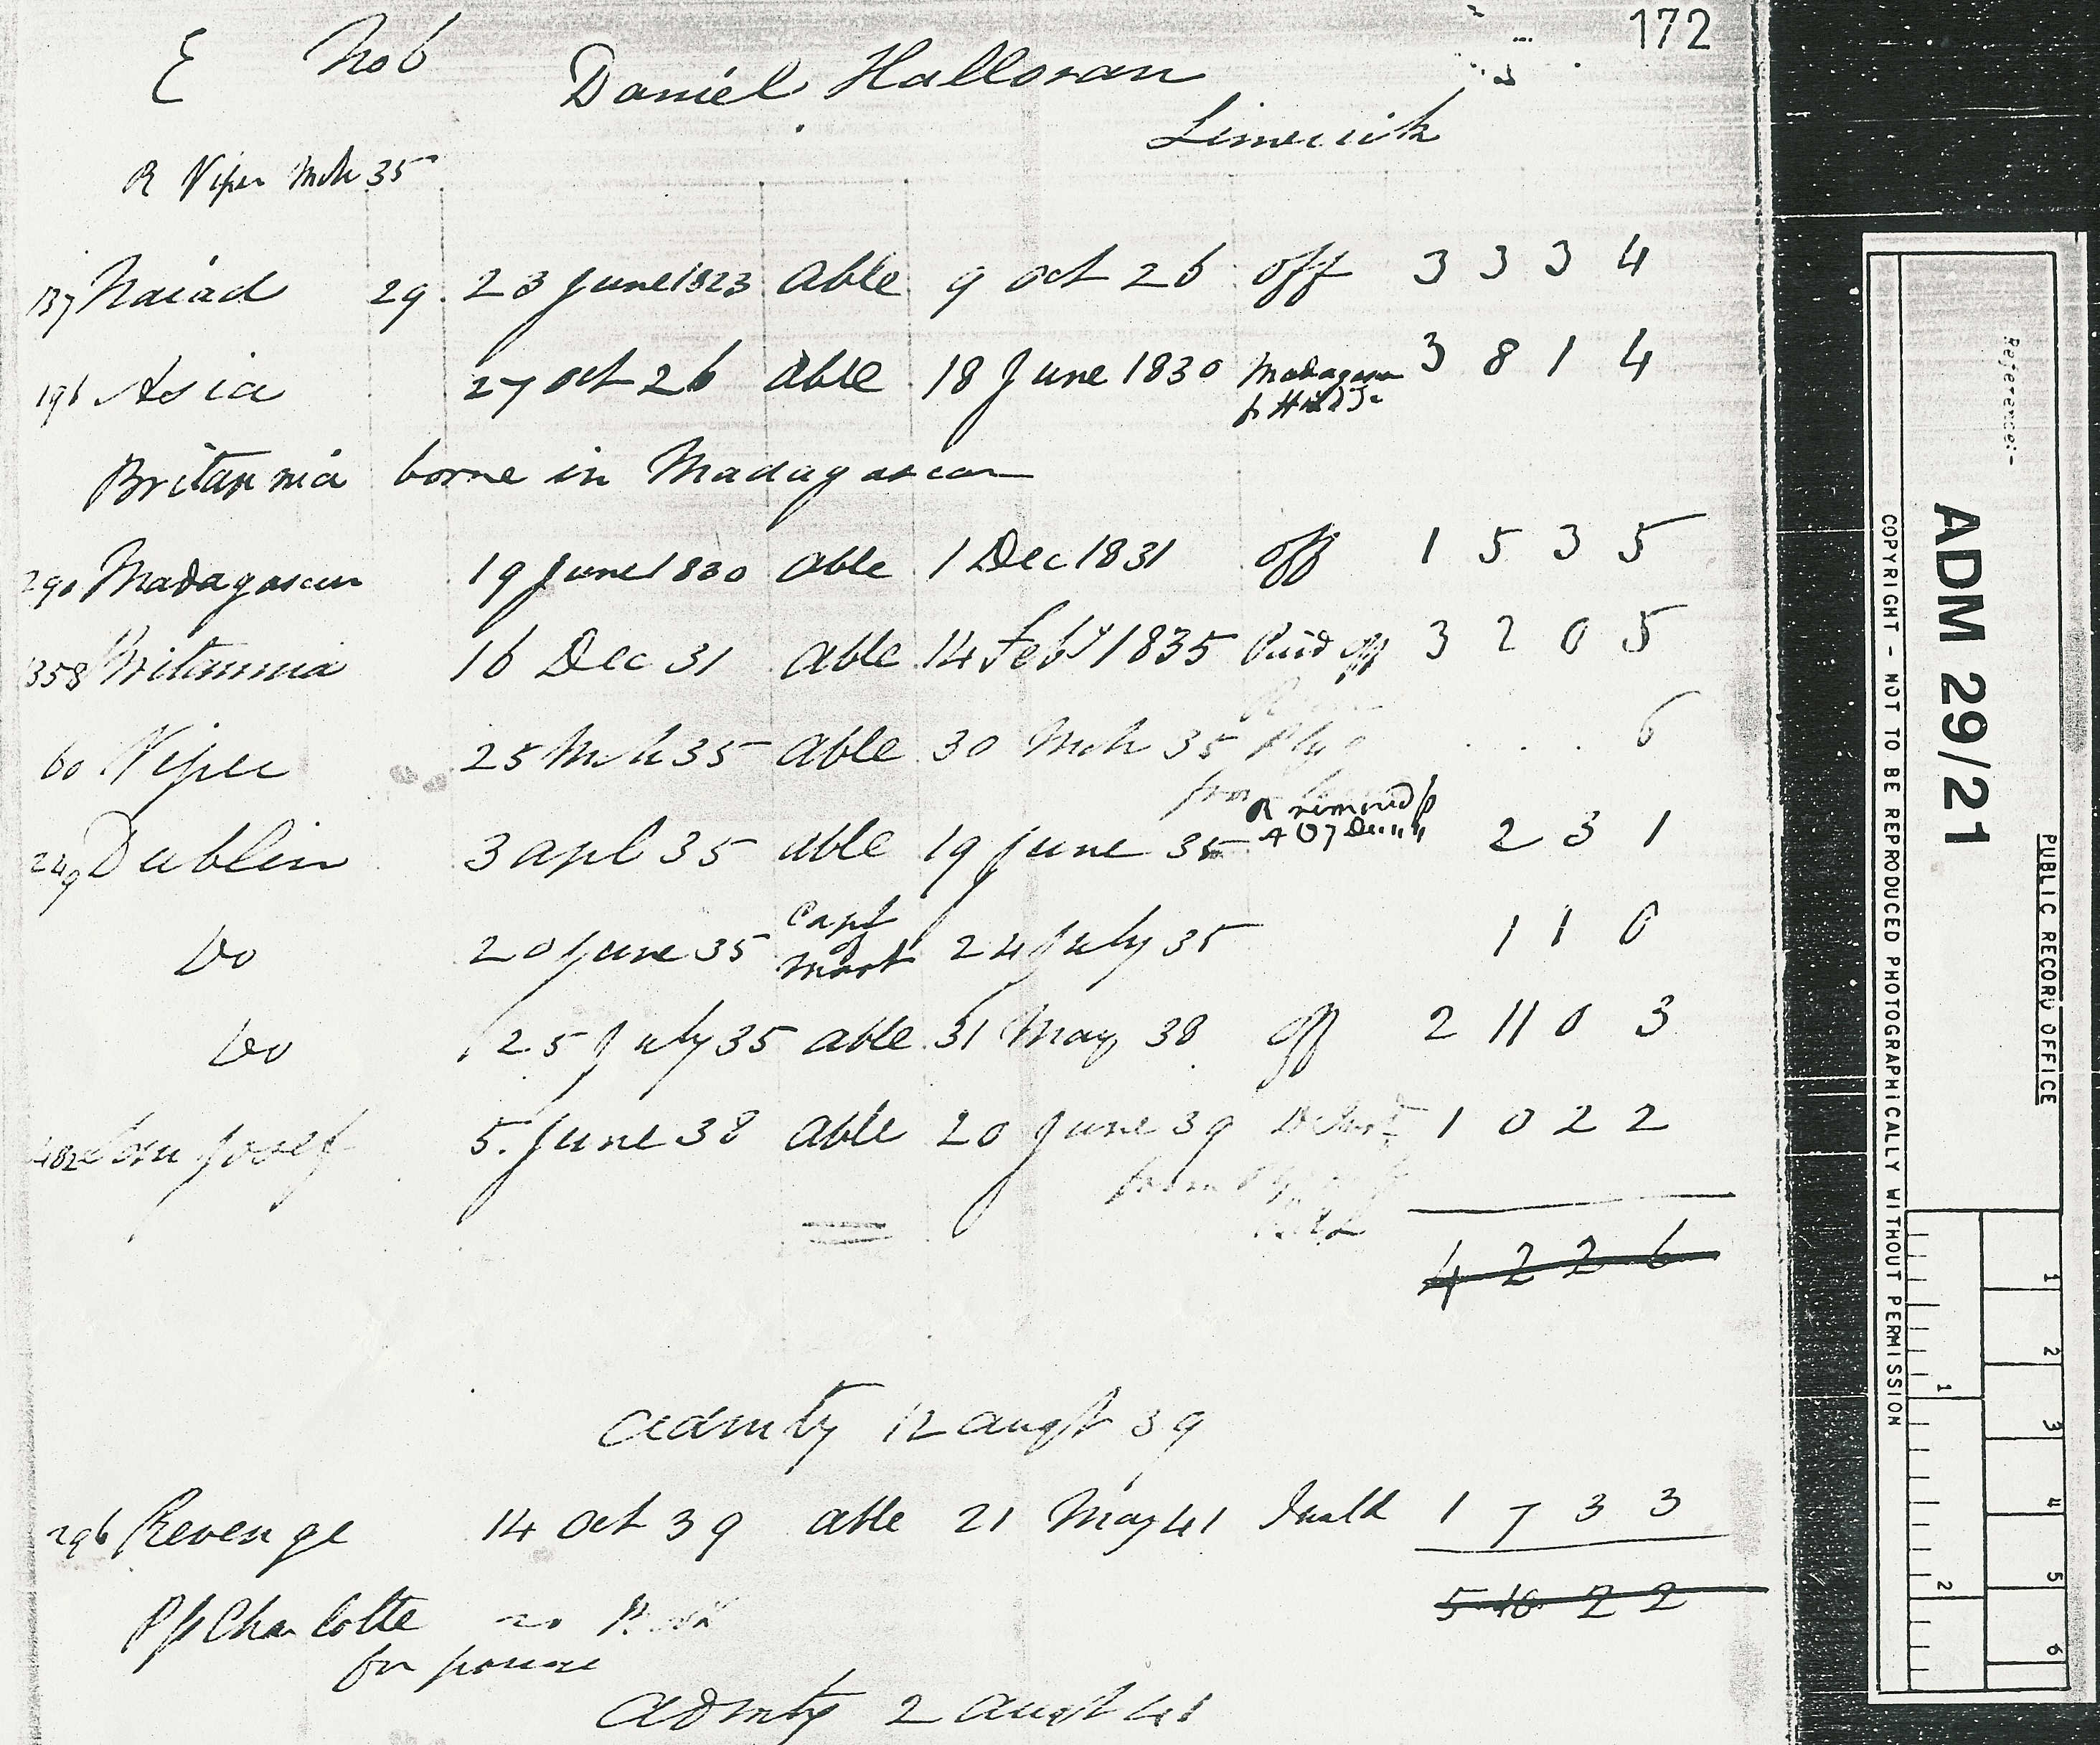 172
E No 6 Daniel Halloran
Limerick
R Viper Mch 35
137 Naiad 29 23 June 1823 Able 9 Oct 26 off 3 3 3 4
196 Asia 27 Oct 26 Able 18 June 1830 Madagascar 3 8 1 4
Britannia borne in Madagascar
290 Madagascar 19 June 1830 Able 1 Dec 1831 off 1 5 3 5
358 Britannia 16 Dec 31 Able 14 Feby 1835 Paid off 3 2 0 5
60 Viper 25 Mch 35 Able 30 Mch 35 . . . 6
249 Dublin 3 Apl 35 Able 19 June 35 2 3 1
Do 20 June 35 Capt Mast 24 July 35 1 1 0
Do 25 July 35 Able 31 May 38 off 2 11 0 3
San Josef 5 June 38 Able 20 June 39 1 0 2 2
from
4 2 2 6
Admty 12 Augst 39
296 Revenge 14 Oct 39 Able 21 May 41 Invald 1 7 3 3
5 10 2 2
Pss Charlotte no
for
Admty 2 Augst 41
Reference:-
ADM 29/21
PUBLIC RECORD OFFICE
COPYRIGHT - NOT TO BE REPRODUCED PHOTOGRAPHICALLY WITHOUT PERMISSION
1 2 3 4 5 6
1 2